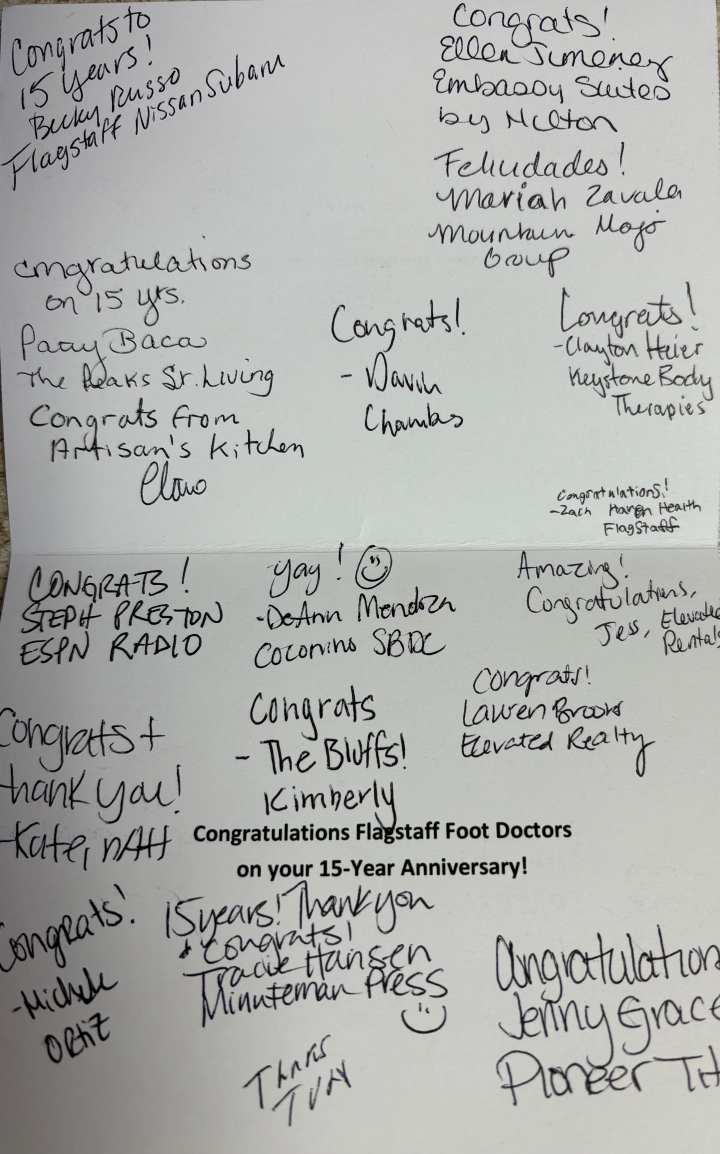 Congrats to
15 years!
Becky Russo
Flagstaff Nissan Subaru
Congrats!
Ellen Jimenez
Embassy Suites
by Hilton
Felicidades!
Mariah Zavala
Mountain Mojo
Group
Congratulations
on 15 yrs.
Patty Baca
The Peaks Sr. Living
Congrats from
Artisan's Kitchen
Congrats!
-
Congrats!
-Clayton Heier
Keystone Body
Therapies
Congratulations!
-Zach Haven Health
Flagstaff
CONGRATS!
STEPH PRESTON
ESPN RADIO
Yay!
-DeAnn Mendoza
Coconino SBDC
Amazing!
Congratulations,
Jess, Elevated
Rentals
Congrats +
thank you!
-Kate, NAH
Congrats
- The Bluffs!
Kimberly
Congrats!
Lauren Brooks
Elevated Realty
Congratulations Flagstaff Foot Doctors
on your 15-Year Anniversary!
Congrats!
-Michele
Ortiz
15 years! Thank you
+ Congrats!
Tracie Hansen
Minuteman Press
Congratulation
Jenny Grace
Pioneer Tit